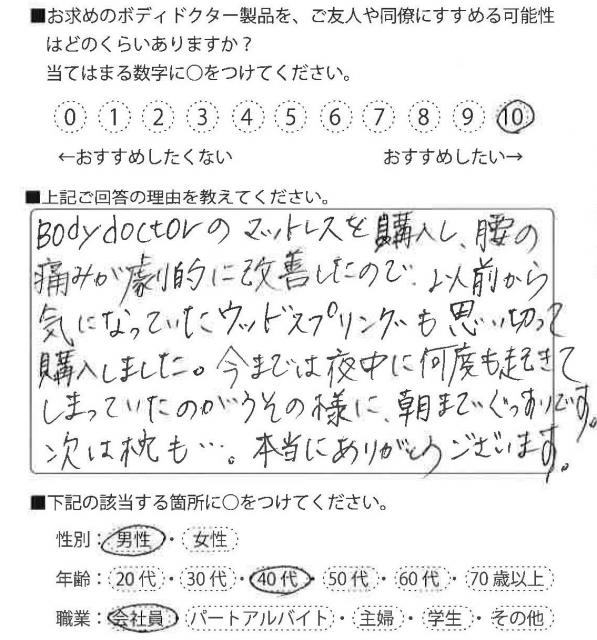 ■お求めのボディドクター製品を、ご友人や同僚にすすめる可能性
はどのくらいありますか？
当てはまる数字に○をつけてください。
0 1 2 3 4 5 6 7 8 9 10
←おすすめしたくない おすすめしたい→
■上記ご回答の理由を教えてください。
Bodydoctorのマットレスを購入し、腰の
痛みが劇的に改善したので、以前から
気になっていたウッドスプリングも思い切って
購入しました。今までは夜中に何度も起きて
しまっていたのがうその様に、朝までぐっすりです。
次は枕も…。本当にありがとうございます。
■下記の該当する箇所に○をつけてください。
性別：男性・女性
年齢：20代・30代・40代・50代・60代・70歳以上
職業：会社員・パートアルバイト・主婦・学生・その他